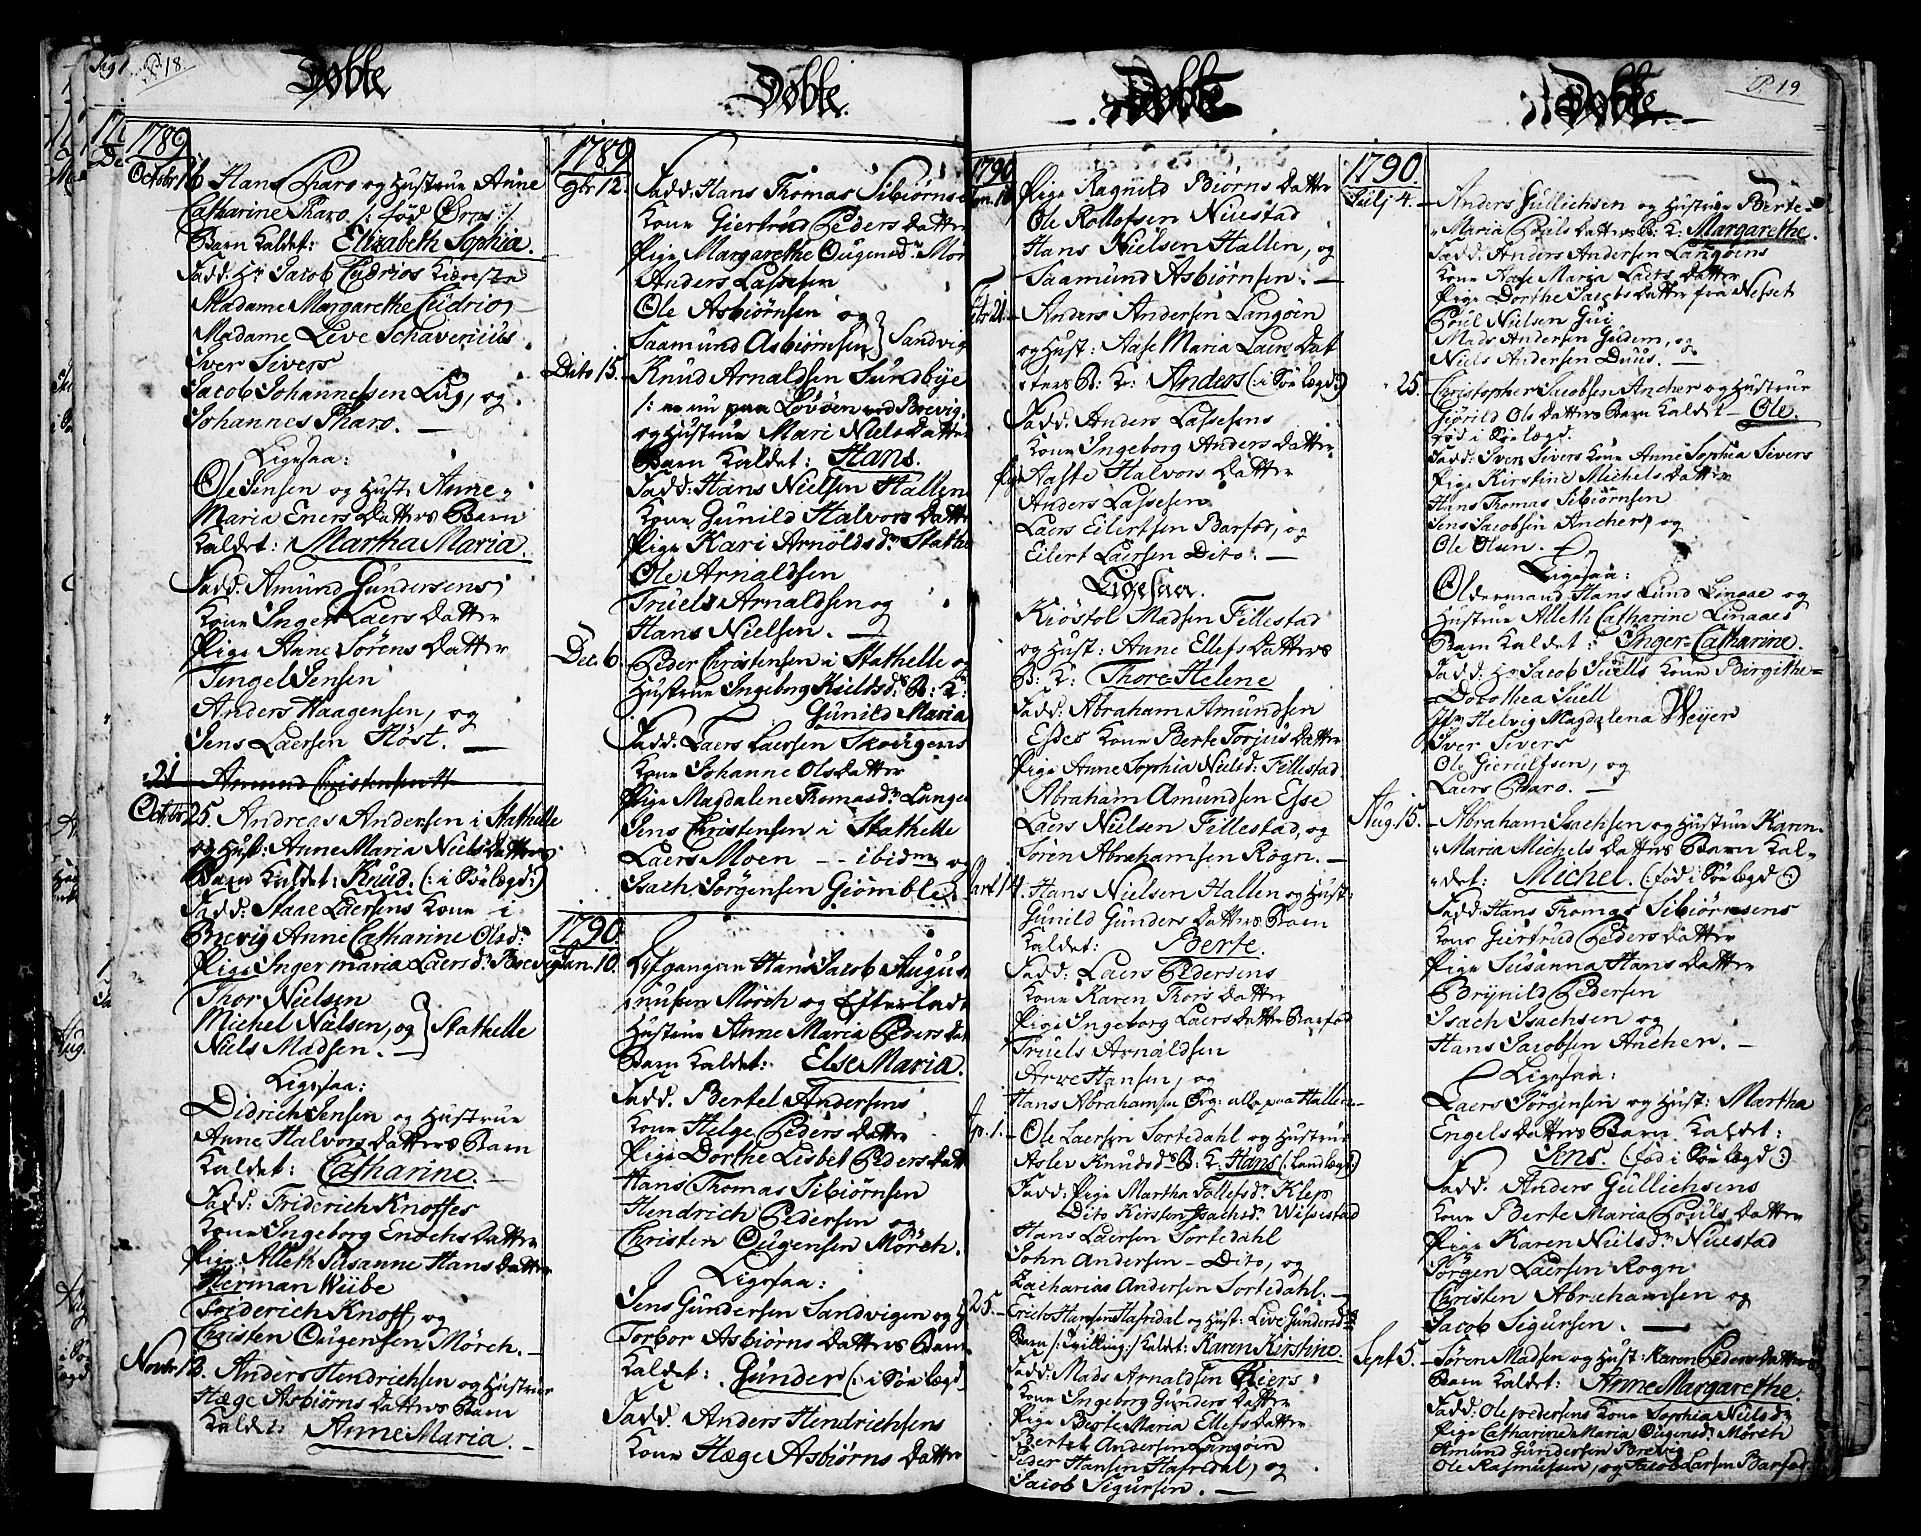 P. 18.
Døbte
1789
Octobr 16 Hans Tharo og Hustrue Anne
Catharine Tharo /: fød Oros :/
Barn Kaldet: Elizabeth Sophia.
Fadd: Hr Jacob Cudrios Kiæreste
Madame Margarethe Cudrio
Madame Live Schavenius
Iver Sivers
Jacob Johannessen Lug, og
Johannes Tharo.
Ligesaa:
Ole Jensen og Hust: Anne
Maria Eners Datters Barn
Kaldet: Martha Maria.
Fadd: Amund Gundersens
Kone Inger Laers Datter
Pige Anne Sørens Datter
Tengel Jensen
Anders Haagensen, og
Jens Laersen Høst.
21 Amund Christensen
Octobr 25. Andreas Andersen i Stathelle
og Hust: Anne Maria Niels Datters
Barn Kaldet: Knud. (: i Søe lægd :)
Fadd: Staae Laersens Kone i
Brevig Anne Catharine Olsd:
Pige Inger Maria Laersdr Brevig
Thor Nielsen
Michel Nielsen, og
Niels Madsen. } Stathelle
Ligesaa:
Didrich Jensen og Hustrue
Anne Halvors Datters Barn
Kaldet: Catharine.
Fadd: Friderich Knoffes
Kone Ingeborg Enochs Datter
Pige Alleth Susanne Hans Datter
Herman Wiibe
Friderich Knoff, og
Christen Ougensen Mörch.
Novbr 13. Anders Hendrichsen og Hustrue
Hæge Asbiørns Datters Barn
Kaldet: Anne Maria.
Døbte.
1789
9br 12. Fadd: Hans Thomas Sibiørns
Kone Giertrud Peders Datter
Pige Margarethe Ougensdr Mör
Anders Lassesen
Ole Asbiørnsen og
Saamund Asbiørnsen } Sandvig
Dito 15. Knud Arnaldsen Sundbye
/: er nu paa Lovøen ved Brevig
og Hustrue Mari Niels Datter
Barn Kaldet: Hans.
Fadd: Hans Nielsen Hallen
Kone Gunild Halvors Datter
Pige Kari Arnoldsdr Stathe
Ole Arnaldsen
Truels Arnaldsen og
Hans Nielsen.
Dec. 6. Peder Christensen i Stathelle og
Hustrue Ingeborg Kieldsdrs B: K:
Gunild Maria
Fadd: Laers Laersen Skougens
Kone Johanne Ols Datter
Pige Magdalene Thomasdr Lange
Jens Christensen i Stathelle
Laers Moen - - ibidm og
Isach Jörgensen Giömble
1790
Jan. 10. Afgangne Hans Jacob Augus
tinussen Mörch og Efterladte
Hustrue Anne Maria Peders Dat
Barn Kaldet: Else Maria.
Fadd: Bertel Andersens
Kone Helge Peders Datter
Pige Dorthe Lisbet Peders Datt
Hans Thomas Sibiørnsen
Hendrich Pedersen og
Christen Ougensen Mörch.
Ligesaa:
Jens Gundersen Sandvigen og H
Torbor Asbiørns Datters Barn
Kaldet: Gunder (: i Søe lægd
Fadd: Anders Hendrichsens
Kone Hæge Asbiørns Datter
Døbte
1790
Jan. 10 Pige Ragnild Biørns Datter
Ole Rollofsen Niiestad
Hans Nielsen Hallen, og
Saamund Asbiørnsen.
Febr 21. Anders Andersen Langøen
og Hust: Aase Maria Laers Dat
ters B: K: Anders (: i Søe lægd :)
Fadd: Anders Lassesens
Kone Ingeborg Anders Datter
Pige Aaste Halvors Datter
Anders Lassesen
Laers Eilertsen Barfod, og
Eilert Laersen Dito.
Ligesaa.
Kiöstol Madsen Fillestad
og Hust: Anne Ellefs Datters
B: K: Thore Helene
Fadd: Abraham Amundsen
Esses Kone Berte Torjus Datter
Pige Anne Sophia Nielsd: Fillestad
Abraham Amundsen Esse
Laers Nielsen Fillestad, og
Søren Abrahamsen Rogn.
Mart. 14. Hans Nielsen Hallen og Hust:
Gunild Gunders Datters Barn
Kaldet: Berte.
Fadd: Laers Pedersens
Kone Karen Thors Datter
Pige Ingeborg Laers Datter Barfod
Truels Arnaldsen
Arve Hansen, og
Hans Abrahamsen Bög: alle paa Hallen
Ap. 1. Ole Laersen Sortedahl og Hustrue
Aslev Knudsdrs B: K: Hans (: Land lægd :)
Fadd: Pige Martha Tollefsdr Klep
Dito Kirsten Isachsdr Wissestad
Hans Laersen Sortedahl
John Andersen - Dito, og
Zacharias Andersen Sortedahl.
25. Erich Hansen Hafredal og Hust: Live Gundersdrs
Barn /: Tvilling :/ Kaldet: Karen Kirstine.
Fadd: Mads Arnaldsen Kiers
Kone Ingeborg Gunders Datter
Pige Berte Maria Ellefs Datter
Bertel Andersen Langøen
Peder Hansen Hafredal, og
Jacob Sigursen.
P. 19
Døbte.
1790.
Julj 4. Anders Gullichsen og Hustrue Berte
Maria Pouls Datters B: K: Margarethe.
Fadd: Anders Andersen Langøens
Kone Aase Maria Laers Datter
Pige Dorthe Jacobs Datter fra Nesset
Poul Nielsen Gui
Mads Andersen Guldem, og
Niels Andersen Duus.
25. Christopher Jacobsen Ancher og Hustrue
Giörild Ols Datters Barn Kaldet - Ole.
Fød i Søe lægd.
Fadd: Iver Sivers Kone Anne Sophia Sivers
Pige Kirstine Michels Datter
Hans Thomas Sibiørnsen
Jens Jacobsen Ancher, og
Ole Olsen.
Ligesaa:
Oldermand Hans Lund Linaae og
Hustrue Alleth Catharine Linaaes
Barn Kaldet: Inger Catharine.
Fadd: Hr Jacob Juells Kone Birgithe
Dorothea Juell
Jfr Helvig Magdalena Weyer
Iver Sivers
Ole Gierulfsen, og
Laers Tharo.
Aug. 15. Abraham Isachsen og Hustrue Karen
Maria Michels Datters Barn Kal
det: Michel. (: fød i Søe lægd :)
Fadd: Hans Thomas Sibiørnsens
Kone Giertrud Peders Datter
Pige Susanna Hans Datter
Brynild Pedersen
Isach Isachsen og
Hans Jacobsen Ancher.
Ligesaa:
Laers Jörgensen og Hust: Martha
Engels Datters Barn Kaldet:
Jens. (: fød i Søe lægd :)
Fadd. Anders Gullichsens
Kone Berte Maria Pouls Datter
Pige Karen Nielsdr Niiestad
Jörgen Laersen Rogn
Christen Abrahamsen og
Jacob Sigursen.
Sept. 5. Søren Madsen og Hust: Karen Peders Datters
Barn Kaldet: Anne Margarethe.
Fadd: Ole Pedersens Kone Sophia Nielsdr
Pige Catharine Maria Ougensdr Mörch
Amund Gundersen Brevig
Ole Rasmussen, og Jacob Larsen Barfod